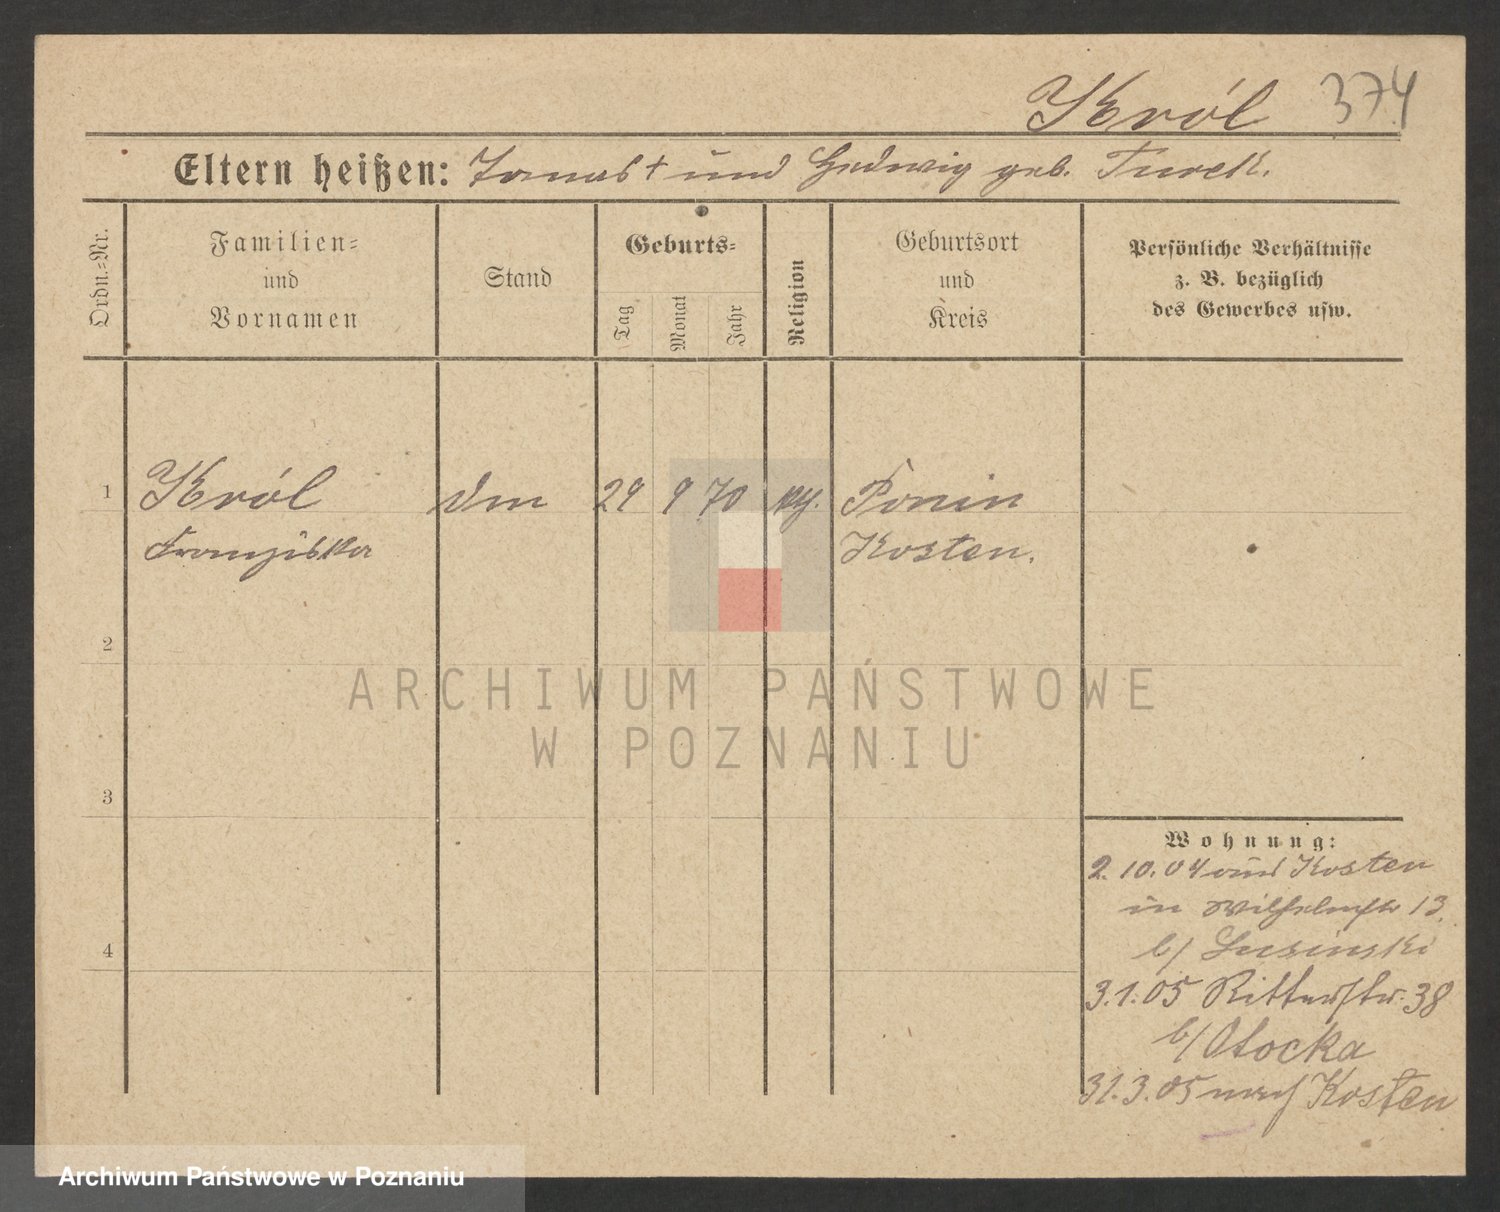 Król 374
Eltern heißen: Tomas † und Hedwig geb. Turek.
Ordn.-Nr.
Familien-
und
Vornamen
Stand
Geburts-
Tag
Monat
Jahr
Religion
Geburtsort
und
Kreis
Persönliche Verhältnisse
z. B. bezüglich
des Gewerbes usw.
1 Król 29 9 70 kth. Ponin
Franziska Kosten.
2
3
4
Wohnung:
2. 10. 04 aus Kosten
in Wilhelmstr 13.
b/ Lusinski
3. 1. 05 Ritterstr. 38
b/ Otocka
31. 3. 05 nach Kosten
ARCHIWUM PAŃSTWOWE
W POZNANIU
Archiwum Państwowe w Poznaniu